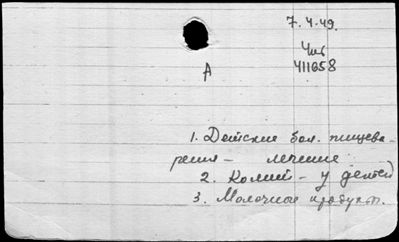 7.4.49.
Чиб
411658
А
1. Детские бол. пищева-
рения - лечение
2. Колит - у детей
3. Молочные продукты.